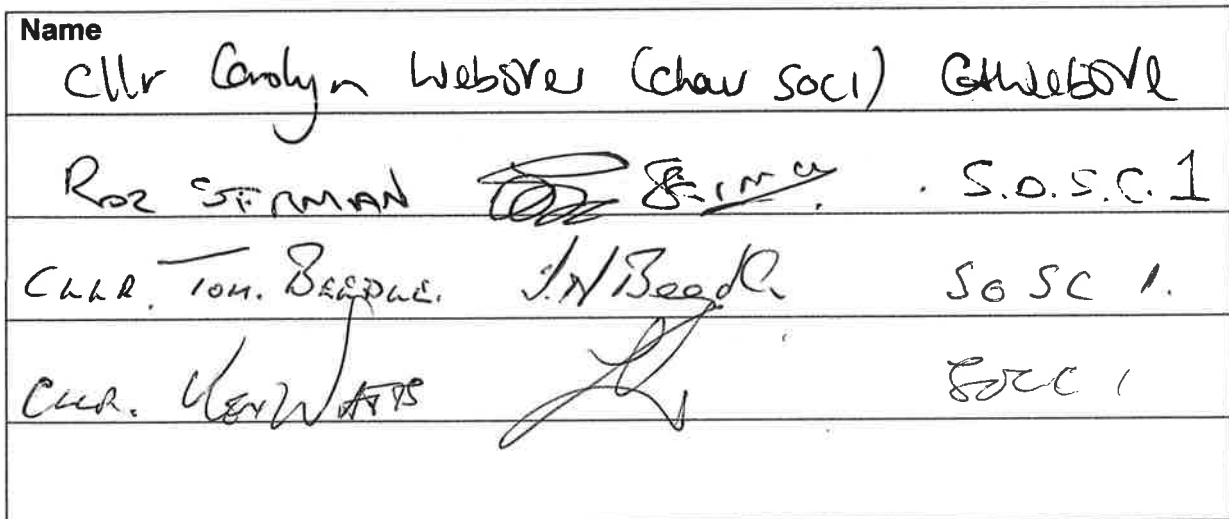 Name
Cllr Carolyn Webster (chair SOC1) CAWebster
Roz SERMAN S.O.S.C.1
CLLR. TOM. BEEDLE. J.N Beedle SOSC 1.
CLLR. KEN WATTS SOSC 1